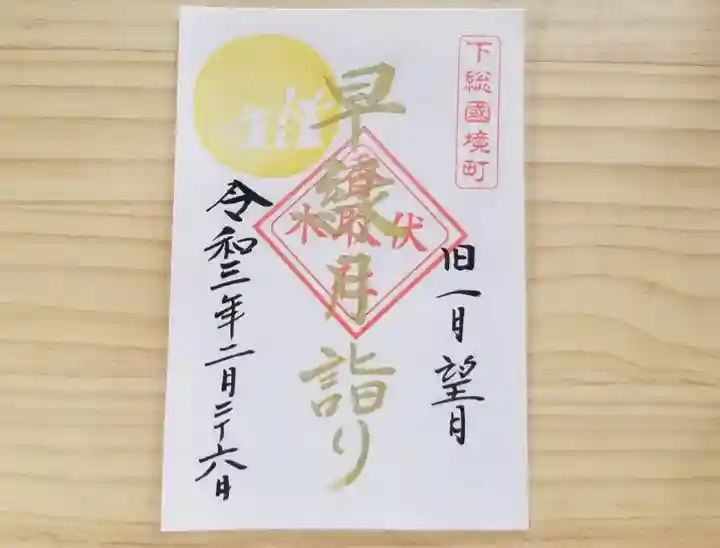 下総國境町
旧一月望月
早緑月詣り
伏木
香取
令和三年二月二十六日